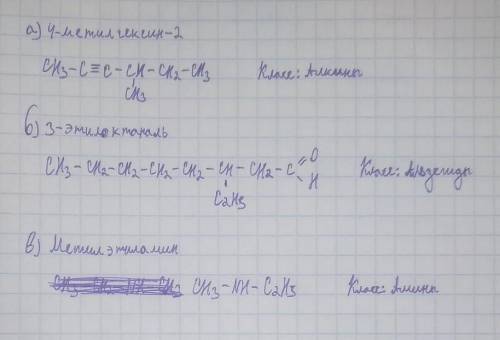 а) 4-метилгексин-2
CH₃-C≡C-CH-CH₂-CH₃ Класс: Алкины
CH₃
б) 3-этилоктаналь
CH₃-CH₂-CH₂-CH₂-CH₂-CH-CH₂-C=O Класс: Альдегиды
H
C₂H₅
в) Метилэтиламин
CH₃-NH-C₂H₅ Класс: Амины